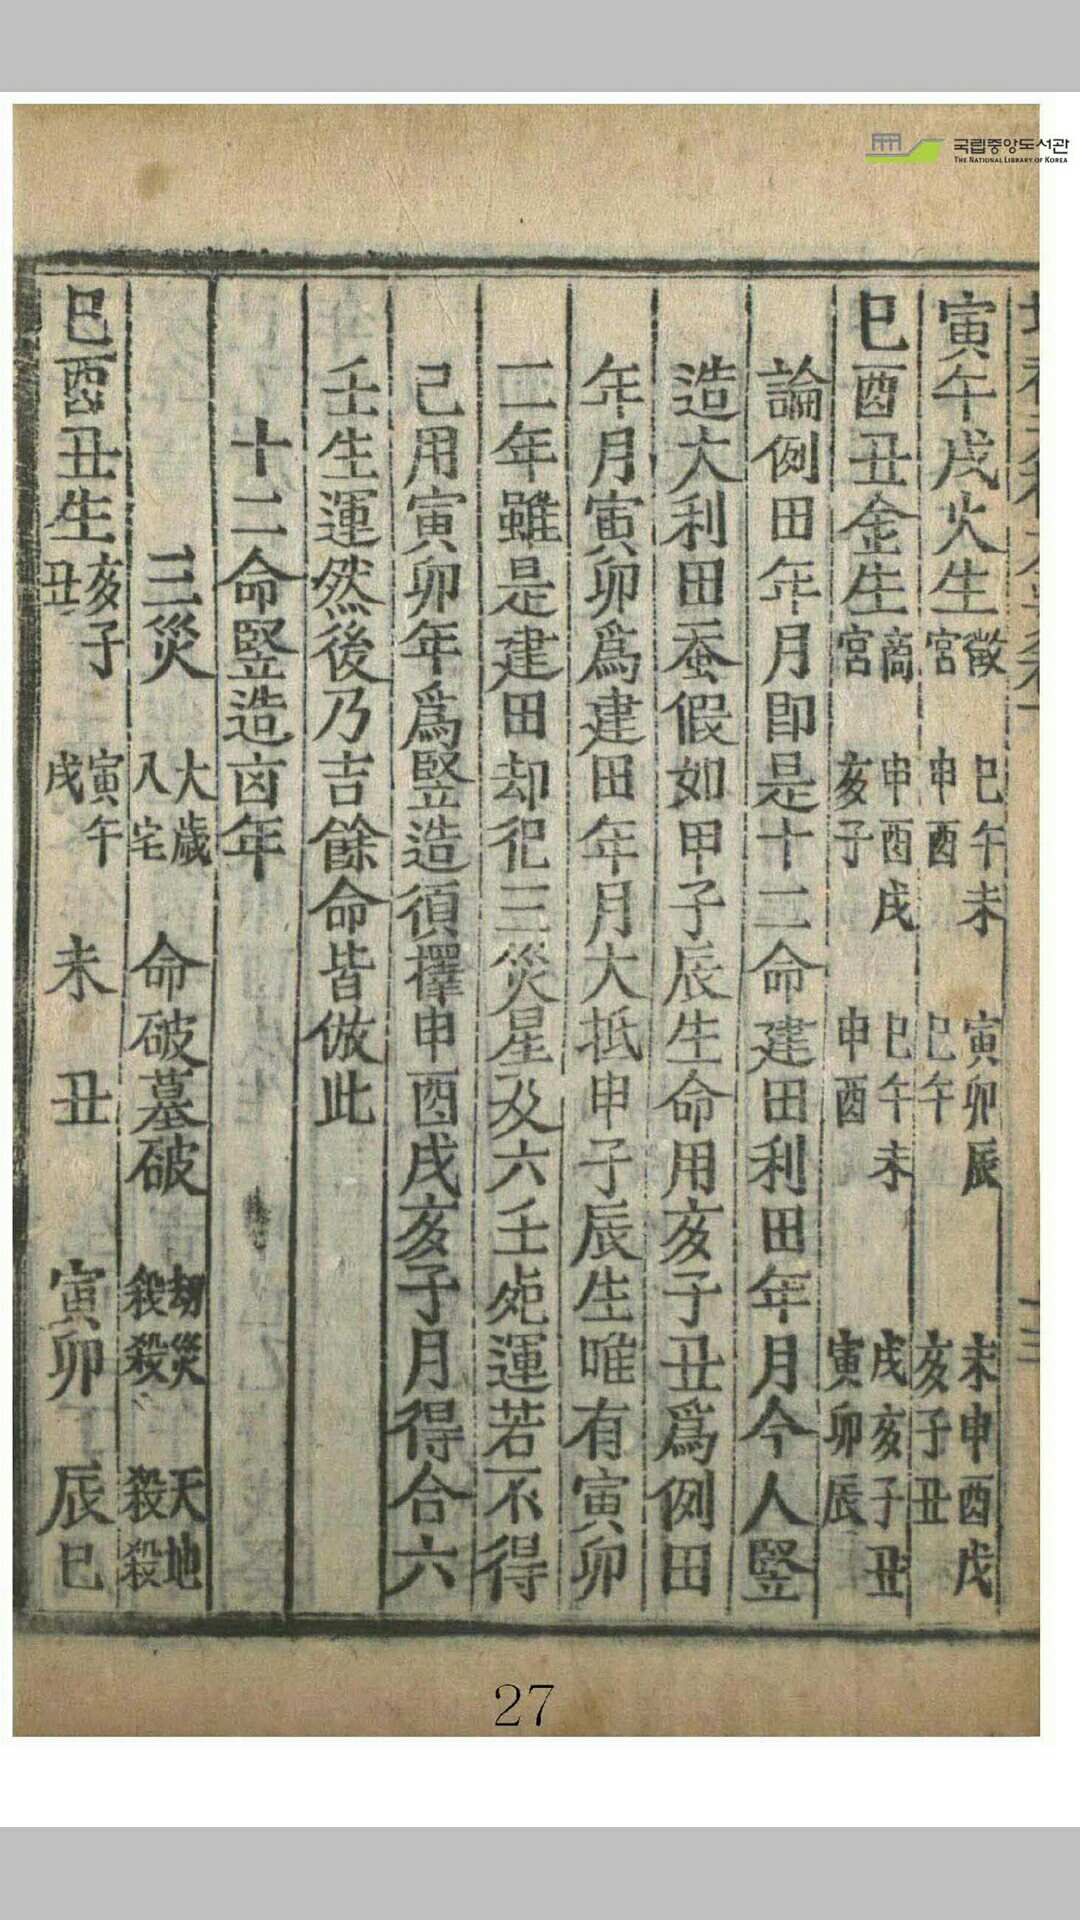 국립중앙도서관
THE NATIONAL LIBRARY OF KOREA
寅午戌火生 徵宮 巳午未申酉 寅卯辰巳午 未申酉戌亥子丑
巳酉丑金生 商宮 申酉戌亥子 巳午未申酉 戌亥子丑寅卯辰
論例田年月即是十二命建田利田年月今人竪
造大利田蚕假如甲子辰生命用亥子丑爲例田
年月寅卯爲建田年月大抵申子辰生唯有寅卯
二年雖是建田却犯三災星及六壬死運若不得
己用寅卯年爲竪造須擇申酉戌亥子月得合六
壬生運然後乃吉餘命皆倣此
十二命竪造凶年
三災 大歳入宅 命破墓破 劫災殺殺 天地殺殺
巳酉丑生 亥子丑 寅午戌 未 丑 寅卯 辰巳
27